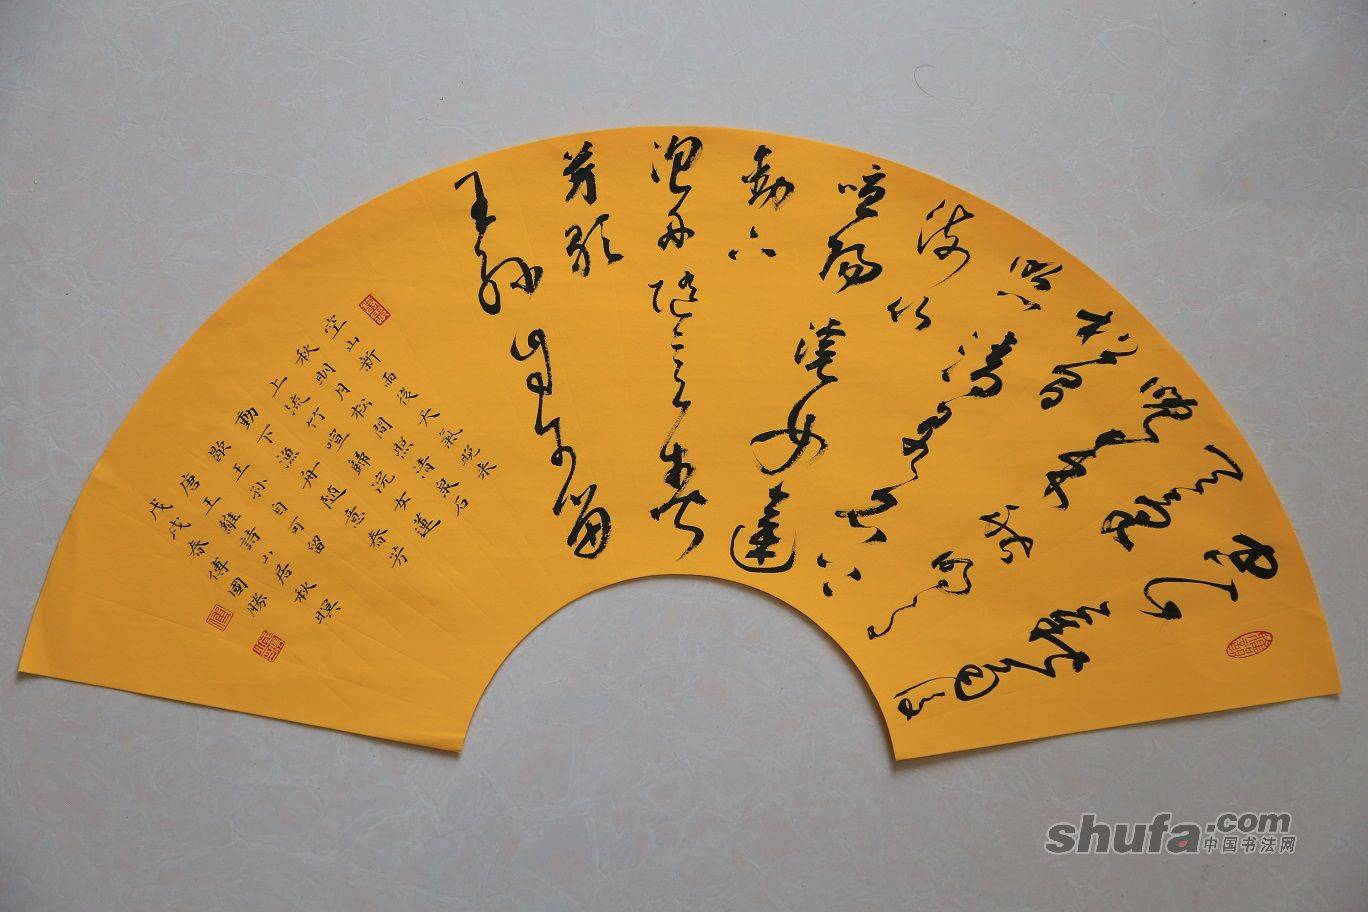 空山
新雨後天氣
晚来秋明月
松間
照清泉石上
流竹
喧歸浣女蓮
動下
漁舟随意春
芳歇
王孫自可留
空山新雨後天氣晚来
秋明月松間照清泉石
上流竹喧歸浣女蓮
動下漁舟随意春芳
歇王孫自可留
唐王維詩山居秋暝
戊戌春傅國勝
shufa.com
中国书法网